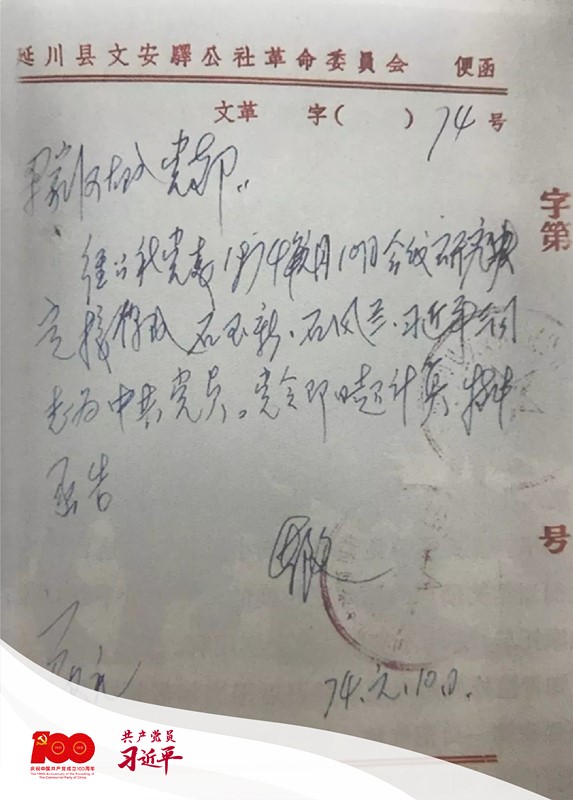 延川县文安驛公社革命委員会 便函
文革 字( ) 74 号
字第
党部
经公社党委1974年元月10日会议研究决
定接收 石玉新、石凤兰、习近平
志为中共党员。党令即日起计算 特此
函告
号
74.元.10日.
100
庆祝中国共产党成立100周年
The 100th Anniversary of the Founding of
The Communist Party of China
共产党员
习近平